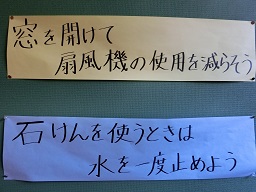 窓を開けて
扇風機の使用を減らそう
石けんを使うときは
水を一度止めよう